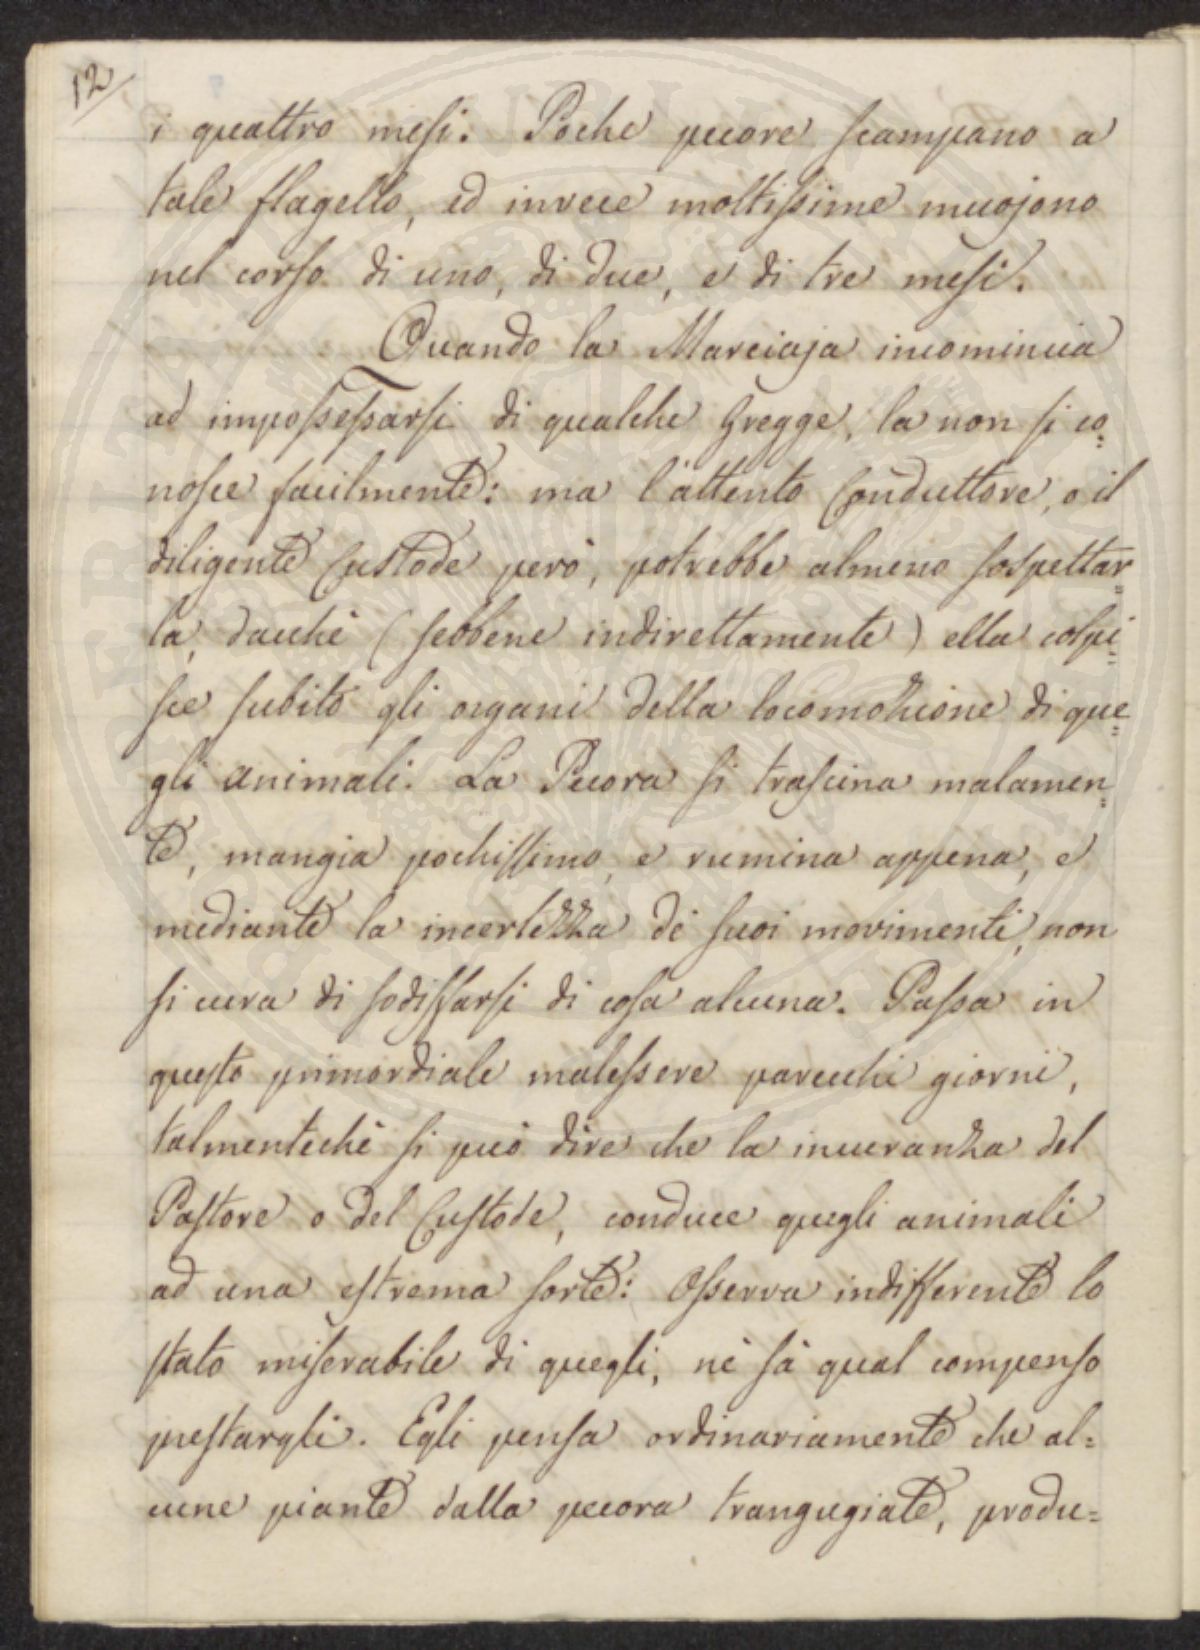 12
i quattro mesi. Poche pecore scampano a
tale flagello, ed invece moltissime muojono
nel corso di uno, di due, e di tre mesi.
Quando la Marciaja incomincia
ad impossessarsi di qualche Gregge, la non si co=
nosce facilmente: ma l'attento Conduttore, o il
diligente Custode però, potrebbe almeno sospettar=
la, dacchè (sebbene indirettamente) ella colpi=
sce subito gli organi della locomozione di que=
gli animali. La Pecora si trascina malamen=
te, mangia pochissimo, e rumina appena, e
mediante la incertezza de suoi movimenti, non
si cura di sodisfarsi di cosa alcuna. Passa in
questo primordiale malessere parecchi giorni,
talmentechè si può dire che la incuranza del
Pastore o del Custode, conduce quegli animali
ad una estrema sorte: Osserva indifferente lo
stato miserabile di quegli, nè sà qual compenso
prestargli. Egli pensa ordinariamente che al=
cune piante dalla pecora trangugiate, produ=